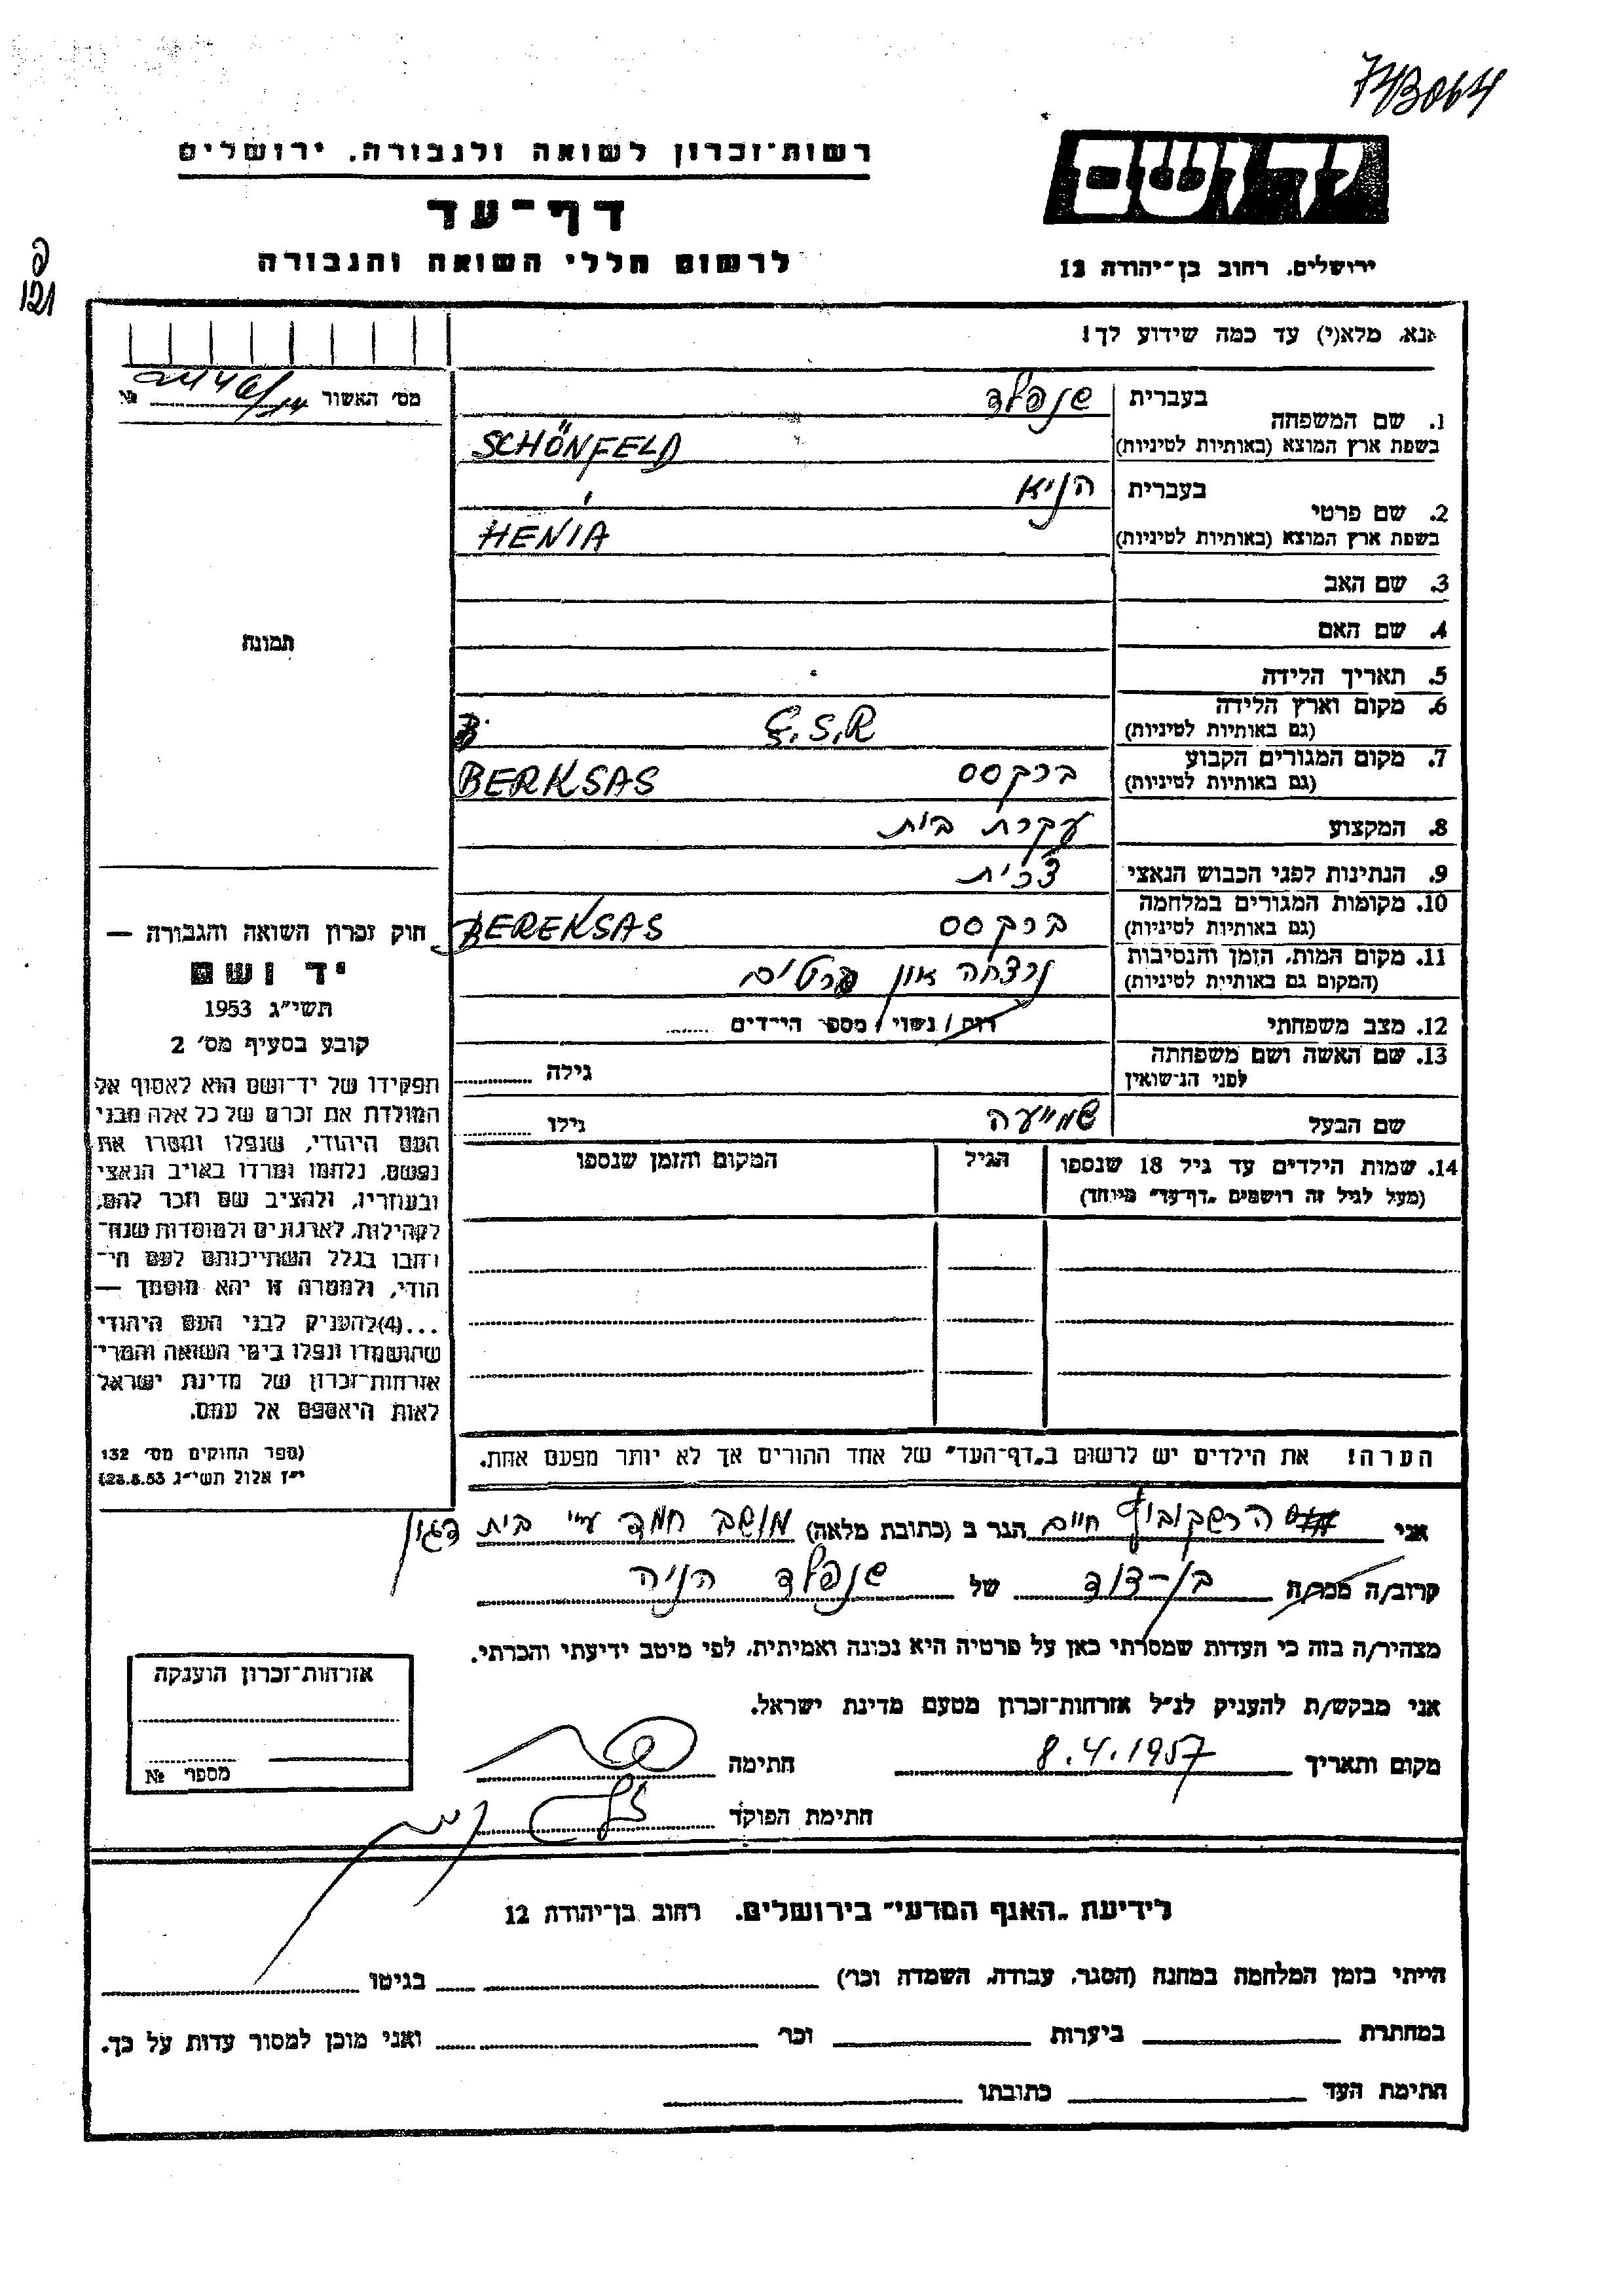 743064
רשות־זכרון לשואה ולגבורה. ירושלים
ידושם
דף־עד
לרשום חללי השואה והגבורה
ירושלים. רחוב בן־יהודה 12
פ
121
אנא. מלא(י) עד כמה שידוע לך!
מס׳ האשור №
1. שם המשפחה
בעברית שנפלד
בשפת ארץ המוצא (באותיות לטיניות) SCHÖNFELD
2. שם פרטי
בעברית הניא
בשפת ארץ המוצא (באותיות לטיניות) HENIA
3. שם האב
4. שם האם
תמונה
5. תאריך הלידה
6. מקום וארץ הלידה
(גם באותיות לטיניות) Č.S.R B
7. מקום המגורים הקבוע
(גם באותיות לטיניות) ברקסס BERKSAS
8. המקצוע עקרת בית
9. הנתינות לפני הכבוש הנאצי צ'כית
10. מקומות המגורים במלחמה
(גם באותיות לטיניות) ברקסס BEREKSAS
11. מקום המות, הזמן והנסיבות
(המקום גם באותיות לטיניות) נרצחה אין פרטים
12. מצב משפחתי רווק / נשוי / מספר הילדים
13. שם האשה ושם משפחתה
לפני הנישואין גילה
שם הבעל שמייעה גילו
14. שמות הילדים עד גיל 18 שנספו
(מעל לגיל זה רושמים „דף־עד״ מיוחד)
הגיל
המקום והזמן שנספו
חוק זכרון השואה והגבורה —
יד ושם
תשי״ג 1953
קובע בסעיף מס׳ 2
תפקידו של יד־ושם הוא לאסוף אל
המולדת את זכרם של כל אלה מבני
העם היהודי, שנפלו ומסרו את
נפשם, נלחמו ומרדו באויב הנאצי
ובעוזריו, ולהציב שם וזכר להם,
לקהילות, לארגונים ולמוסדות שנח־
רבו בגלל השתייכותם לעם הי־
הודי, ולמטרה זו יהא מוסמך —
...(4)להעניק לבני העם היהודי
שהושמדו ונפלו בימי השואה והמרי־
אזרחות־זכרון של מדינת ישראל
לאות היאספם אל עמם.
(ספר החוקים מס׳ 132
י״ז אלול תשי״ג 28.8.53)
הערה! את הילדים יש לרשום ב„דף־העד״ של אחד ההורים אך לא יותר מפעם אחת.
אני הרשקוביץ חיים הגר ב (כתובת מלאה) מושב חמד ע״י בית דגון
קרוב/ה מכר/ה בן-דוד של שנפלד הניה
מצהיר/ה בזה כי העדות שמסרתי כאן על פרטיה היא נכונה ואמיתית, לפי מיטב ידיעתי והכרתי.
אני מבקש/ת להעניק לנ״ל אזרחות־זכרון מטעם מדינת ישראל.
מקום ותאריך 8.4.1957 חתימה
חתימת הפוקד
אזרחות־זכרון הוענקה
מספר №
לידיעת „האגף המדעי״ בירושלים. רחוב בן־יהודה 12
הייתי בזמן המלחמה במחנה (הסגר, עבודה, השמדה וכו׳) בגיטו
במחתרת ביערות וכו׳ ואני מוכן למסור עדות על כך.
חתימת העד כתובתו